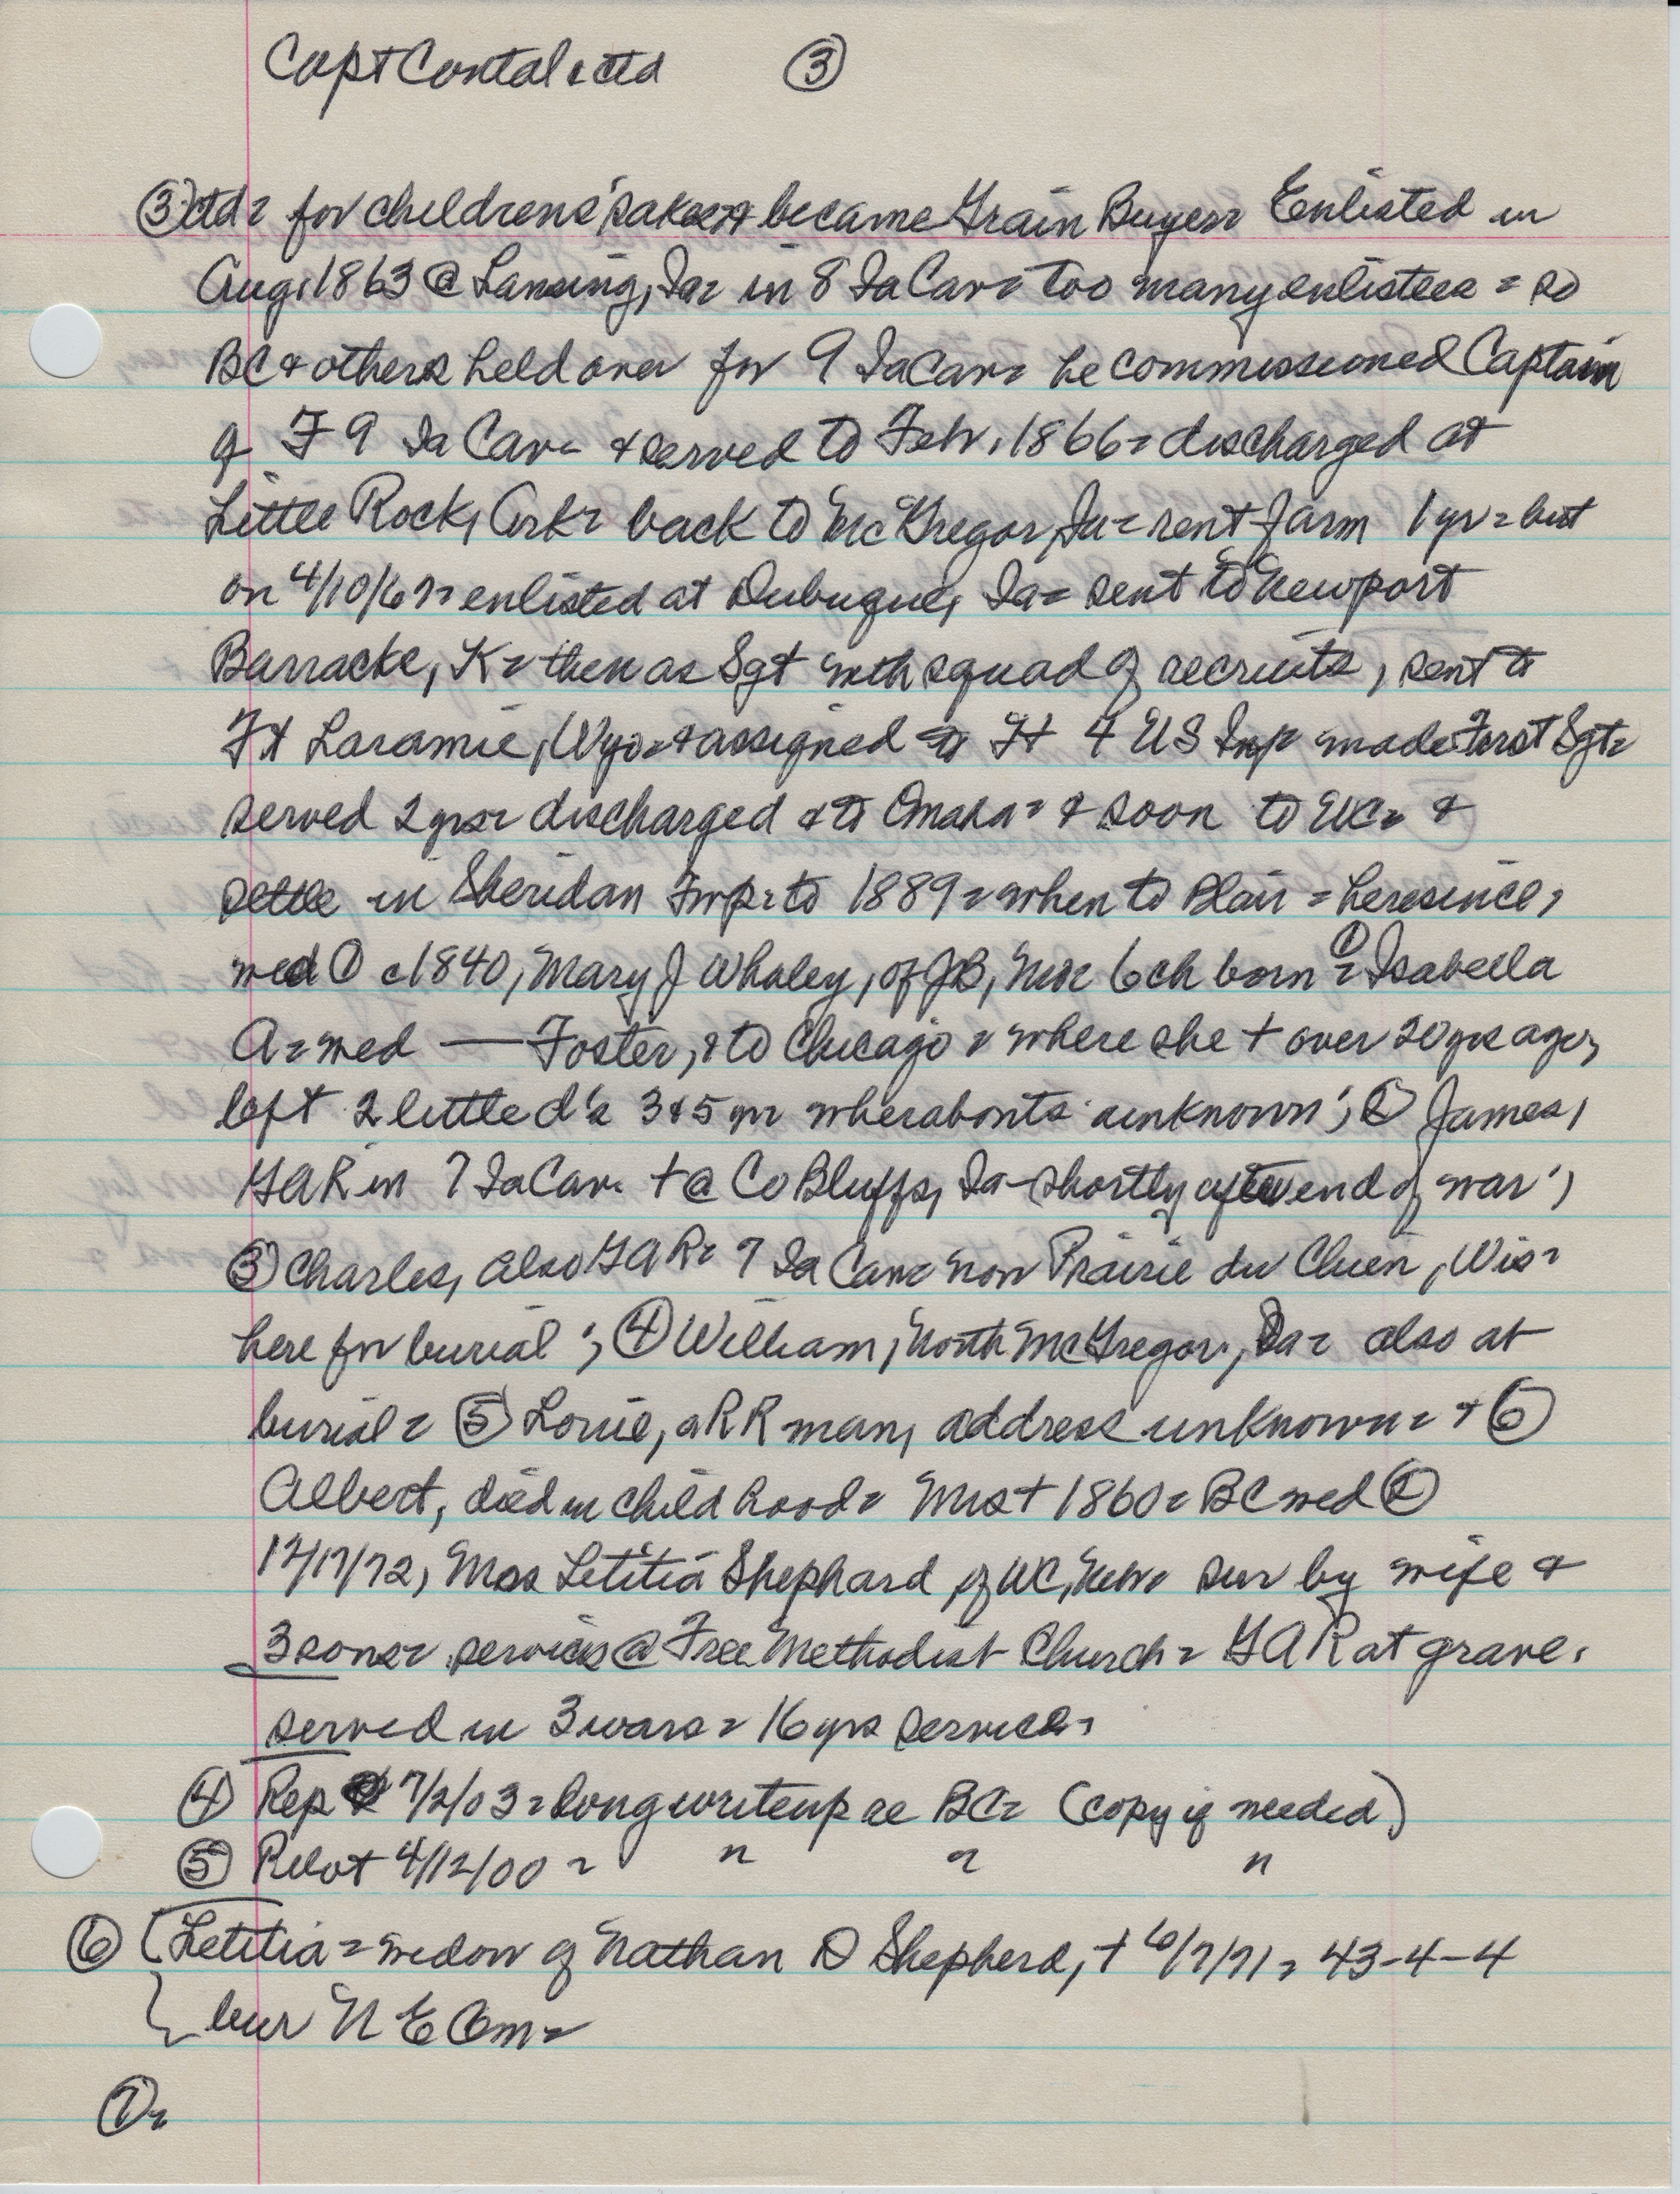 Capt Contal ctd ③
③ ctd = for childrens' sakes & became Grain Buyer = Enlisted in
Aug, 1863 @ Lansing, Ia = in 8 Ia Cav = too many enlistees = so
BC & others held over for 9 Ia Cav = he commissioned Captain
of F 9 Ia Cav - & served to Feb, 1866 = discharged at
Little Rock, Ark = back to McGregor, Ia = rent farm 1 yr = but
on 4/10/67 = enlisted at Dubuque, Ia = sent to Newport
Barracks, K = then as Sgt with squad of recruits, sent to
Ft Laramie, Wyo = & assigned to H 4 US Inf = made First Sgt =
served 2 yrs = discharged & to Omaha = & soon to WC = &
settle in Sheridan Twp = to 1889 = when to Blair = here since,
med ① c1840, Mary J Whaley, of JB, 6 ch born = ① Isabella
A = med — Foster, & to Chicago = where she + over 20 yrs ago,
left 2 little d's 3 & 5 yr wherabouts unknown; ② James,
GAR in 7 Ia Cav. + @ Co Bluffs, Ia - shortly after end of war;
③ Charles, also GAR = 7 Ia Cav = now Prairie du Chien, Wis =
here for burial; ④ William, North McGregor, Ia = also at
burial = ⑤ Louie, a RR man, address unknown = & ⑥
Albert, died in childhood = Mrs + 1860 = BC med ②
12/17/72, Mrs Letitia Shephard, of WC, Neb = sur by wife &
3 sons = services @ Free Methodist Church = GAR at grave.
served in 3 wars = 16 yrs service =
④ Rep 7/2/03 = long writeup re BC = (copy if needed)
⑤ Pilot 4/12/00 = " " "
⑥ Letitia = widow of Nathan D Shepherd, + 6/7/71 = 43-4-4
bur N E Cem =
⑦ =